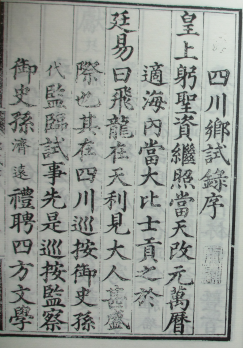 四川鄉試錄序
皇上躬聖資繼照當天改元萬曆
適海內當大比士貢之於
廷易曰飛龍在天利見大人甚盛
際也其在四川巡按御史孫
代監臨試事先是巡按監察
御史孫濟遠禮聘四方文學